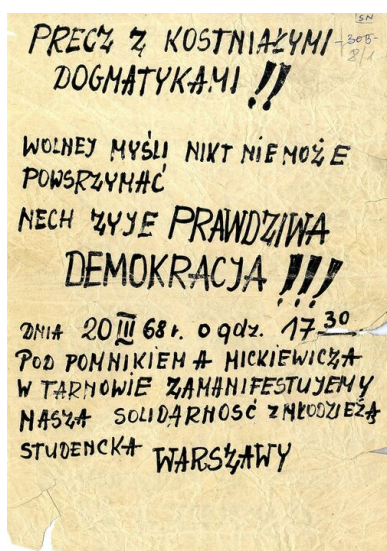 PRECZ Z KOSTNIAŁYMI
DOGMATYKAMI !!
SN
-305-
8/1
WOLNEJ MYŚLI NIKT NIE MOŻE
POWSRZYMAĆ
NECH ŻYJE PRAWDZIWA
DEMOKRACJA !!!
DNIA 20 III 68 r. o gdz. 17 30
POD POMNIKIEM A MICKIEWICZA
W TARNOWIE ZAMANIFESTUJEMY
NASZĄ SOLIDARNOSĆ Z MŁODZIEŻĄ
STUDENCKA WARSZAWY